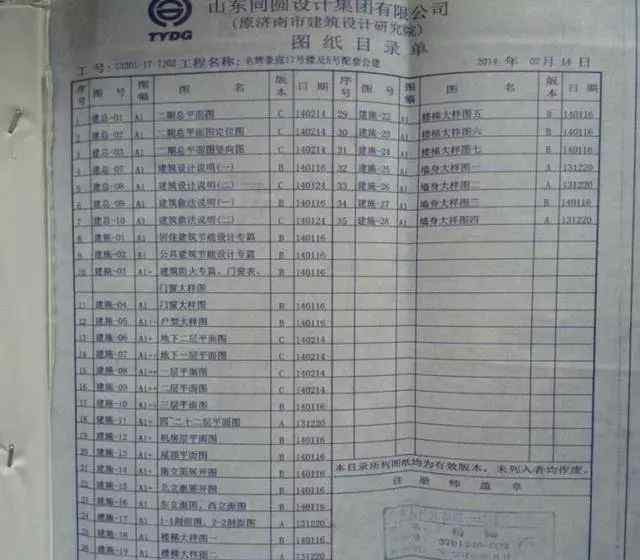 山东同圆设计集团有限公司
(原济南市建筑设计研究院)
TYDG
图 纸 目 录 单
工程名称: 17号楼及5号配套公建 2014 年 02 月 14 日
序号 图 号 图幅 图 名 版本 日 期 序号 图 号 图幅 图 名 版本 日 期
1 建总-01 A1 二期总平面图 C 140214 29 建施-22 A1 楼梯大样图五 B 140116
2 建总-02 A1 二期总平面图定位图 C 140214 30 建施-23 A1 楼梯大样图六 B 140116
3 建总-03 A1 二期总平面图竖向图 C 140214 31 建施-24 A1 楼梯大样图七 B 140116
4 建总-07 A1 建筑设计说明(一) B 140116 32 建施-25 A1 墙身大样图一 A 131220
5 建总-08 A1 建筑设计说明(二) C 140124 33 建施-26 A1 墙身大样图二 A 131220
6 建总-09 A1 建筑做法说明(一) B 140116 34 建施-27 A1 墙身大样图三 B 140116
7 建总-10 A1 建筑做法说明(二) C 140124 35 建施-28 A1 墙身大样图四 A 131220
8 建施-01 A1 居住建筑节能设计专篇 B 140116
9 建施-02 A1 公共建筑节能设计专篇 B 140116
10 建施-03 A1+ 建筑防火专篇、门窗表、 B 140116
门窗大样图
11 建施-04 A1 门窗大样图 B 140116
12 建施-05 A1+ 户型大样图 B 140116
13 建施-06 A1+ 地下二层平面图 C 140214
14 建施-07 A1+ 地下一层平面图 C 140214
15 建施-08 A1+ 一层平面图 C 140214
16 建施-09 A1+ 二层平面图 C 140214
17 建施-10 A1+ 三层平面图 B 140116
18 建施-11 A1+ 四~二十二层平面图 A 131220
19 建施-12 A1+ 机房层平面图 B 140116
20 建施-13 A1+ 屋顶平面图 B 140116
21 建施-14 A1+ 南立面展开图 B 140116
本目录所列图纸均为有效版本,未列入者均作废。
22 建施-15 A1+ 北立面展开图 B 140116
注 册 师 盖 章
23 建施-16 A1 东立面图、西立面图 B 140116
24 建施-17 A1 1-1剖面图、2-2剖面图 A 131220
25 建施-18 A1 楼梯大样图一 B 140116
26 建施-19 A1 楼梯大样图二 A 131220